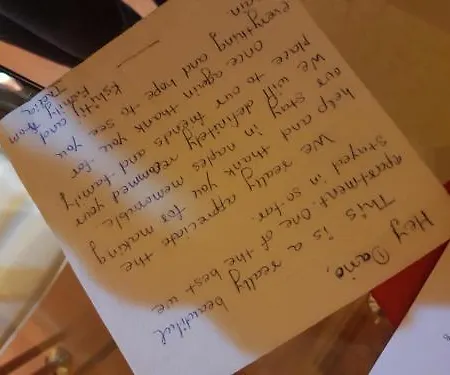 Hey Dario,
This is a really beautiful
apartment. One of the best we
stayed in so far.
We really appreciate the
help and thank you for making
our stay in naples memorible
We will definitely recommed your
place to our friends and family
once again thank you for
everything and hope to see you
again
Family from
India